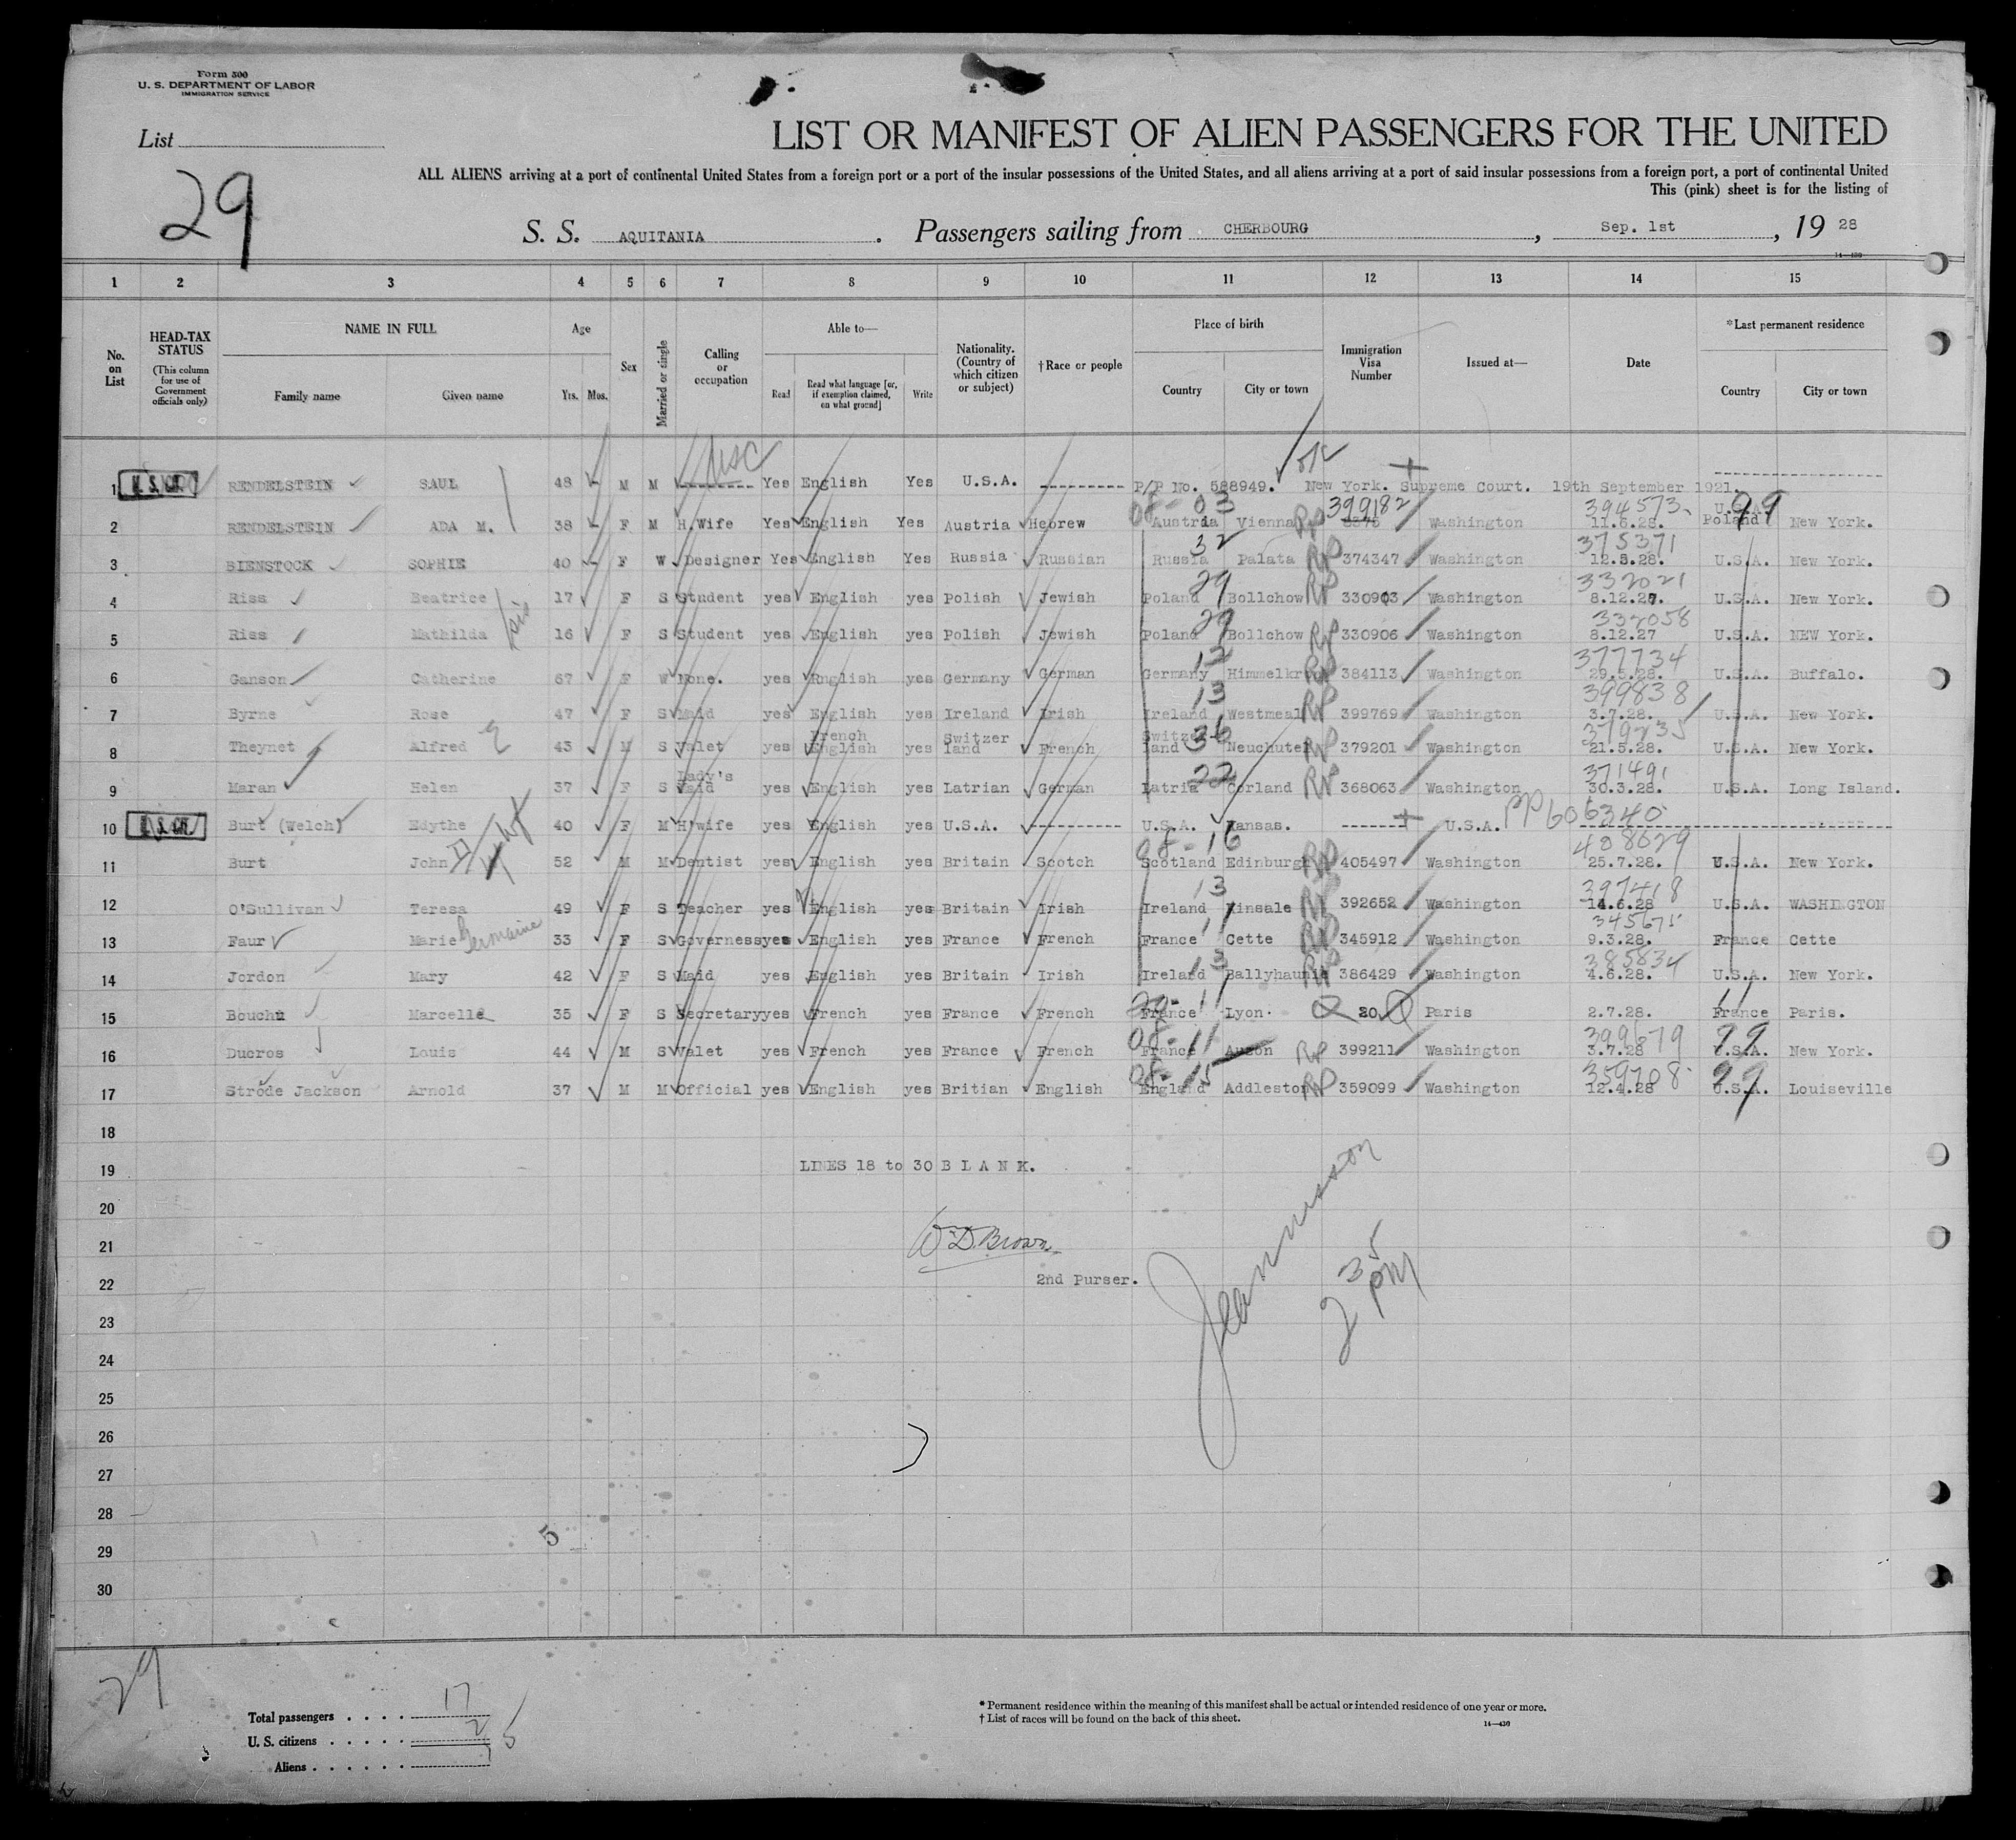 Form 500
U. S. DEPARTMENT OF LABOR
IMMIGRATION SERVICE
List
29
LIST OR MANIFEST OF ALIEN PASSENGERS FOR THE UNITED
ALL ALIENS arriving at a port of continental United States from a foreign port or a port of the insular possessions of the United States, and all aliens arriving at a port of said insular possessions from a foreign port, a port of continental United
This (pink) sheet is for the listing of
S. S. AQUITANIA . Passengers sailing from CHERBOURG , Sep. 1st , 19 28
14—430
1 2 3 4 5 6 7 8 9 10 11 12 13 14 15
No. on List
HEAD-TAX STATUS (This column for use of Government officials only)
NAME IN FULL Family name Given name
Age Yrs. Mos.
Sex
Married or single
Calling or occupation
Able to— Read Read what language [or, if exemption claimed, on what ground] Write
Nationality. (Country of which citizen or subject)
†Race or people
Place of birth Country City or town
Immigration Visa Number
Issued at—
Date
*Last permanent residence Country City or town
USC
1 RENDELSTEIN SAUL 48 M M -------- Yes English Yes U.S.A. --------- P/P No. 588949. New York. Supreme Court. 19th September 1921.
08-03 399182 394573 99
2 RENDELSTEIN ADA M. 38 F M H.Wife Yes English Yes Austria Hebrew Austria Vienna RP Washington 11.6.28. U.S.A. Poland New York.
32 375371
3 BIENSTOCK SOPHIE 40 F W Designer Yes English Yes Russia Russian Russia Palata RP 374347 Washington 12.5.28. U.S.A. New York.
29 332021
4 Riss Beatrice 17 F S Student yes English yes Polish Jewish Poland Bollchow RP 330903 Washington 8.12.27. U.S.A. New York.
sis
29 332058
5 Riss Mathilda 16 F S Student yes English yes Polish Jewish Poland Bollchow RP 330906 Washington 8.12.27 U.S.A. NEW York.
12 377734
6 Ganson Catherine 67 F W None. yes English yes Germany German Germany RP 384113 Washington 29.5.28. U.S.A. Buffalo.
13 399838
7 Byrne Rose 47 F S Maid yes English yes Ireland Irish Ireland Westmeal RP 399769 Washington 3.7.28. U.S.A. New York.
36 379235
8 Theynet Alfred 43 M S Valet yes French English yes Switzer land French Switzer land Neuchutel RP 379201 Washington 21.5.28. U.S.A. New York.
22 371491
9 Maran Helen 37 F S Lady's Maid yes English yes Latrian German Latria Corland RP 368063 Washington 30.3.28. U.S.A. Long Island.
10 Burt (Welch) Edythe 40 F M H'wife yes English yes U.S.A. ---------- U.S.A. Kansas. ------- U.S.A. PP 606340
08-16 408029
11 Burt John 52 M M Dentist yes English yes Britain Scotch Scotland Edinburgh RP 405497 Washington 25.7.28. U.S.A. New York.
13 397418
12 O'Sullivan Teresa 49 F S Teacher yes English yes Britain Irish Ireland Kinsale RP 392652 Washington 14.6.28 U.S.A. WASHINGTON
11 345675
13 Faur Marie Germaine 33 F S Governess yes English yes France French France Cette RP 345912 Washington 9.3.28. France Cette
13 385834
14 Jordon Mary 42 F S Maid yes English yes Britain Irish Ireland Ballyhaunis RP 386429 Washington 4.6.28. U.S.A. New York.
11 11
15 Bouchu Marcelle 35 F S Secretary yes French yes France French France Lyon. 20 Paris 2.7.28. France Paris.
08-11 399679 99
16 Ducros Louis 44 M S Valet yes French yes France French France Auzon RP 399211 Washington 3.7.28 U.S.A. New York.
08-15 359708 99
17 Strode Jackson Arnold 37 M M Official yes English yes Britian English England Addleston RP 359099 Washington 12.4.28 U.S.A. Louiseville
18
19 LINES 18 to 30 B L A N K.
20
21 Wm D. Brown
22 2nd Purser.
2 35 PM
23
24
25
26
27
28
29
30
5
29
Total passengers . . . . 17
U. S. citizens . . . . . 2
Aliens . . . . . . 15
* Permanent residence within the meaning of this manifest shall be actual or intended residence of one year or more.
† List of races will be found on the back of this sheet.
14—430